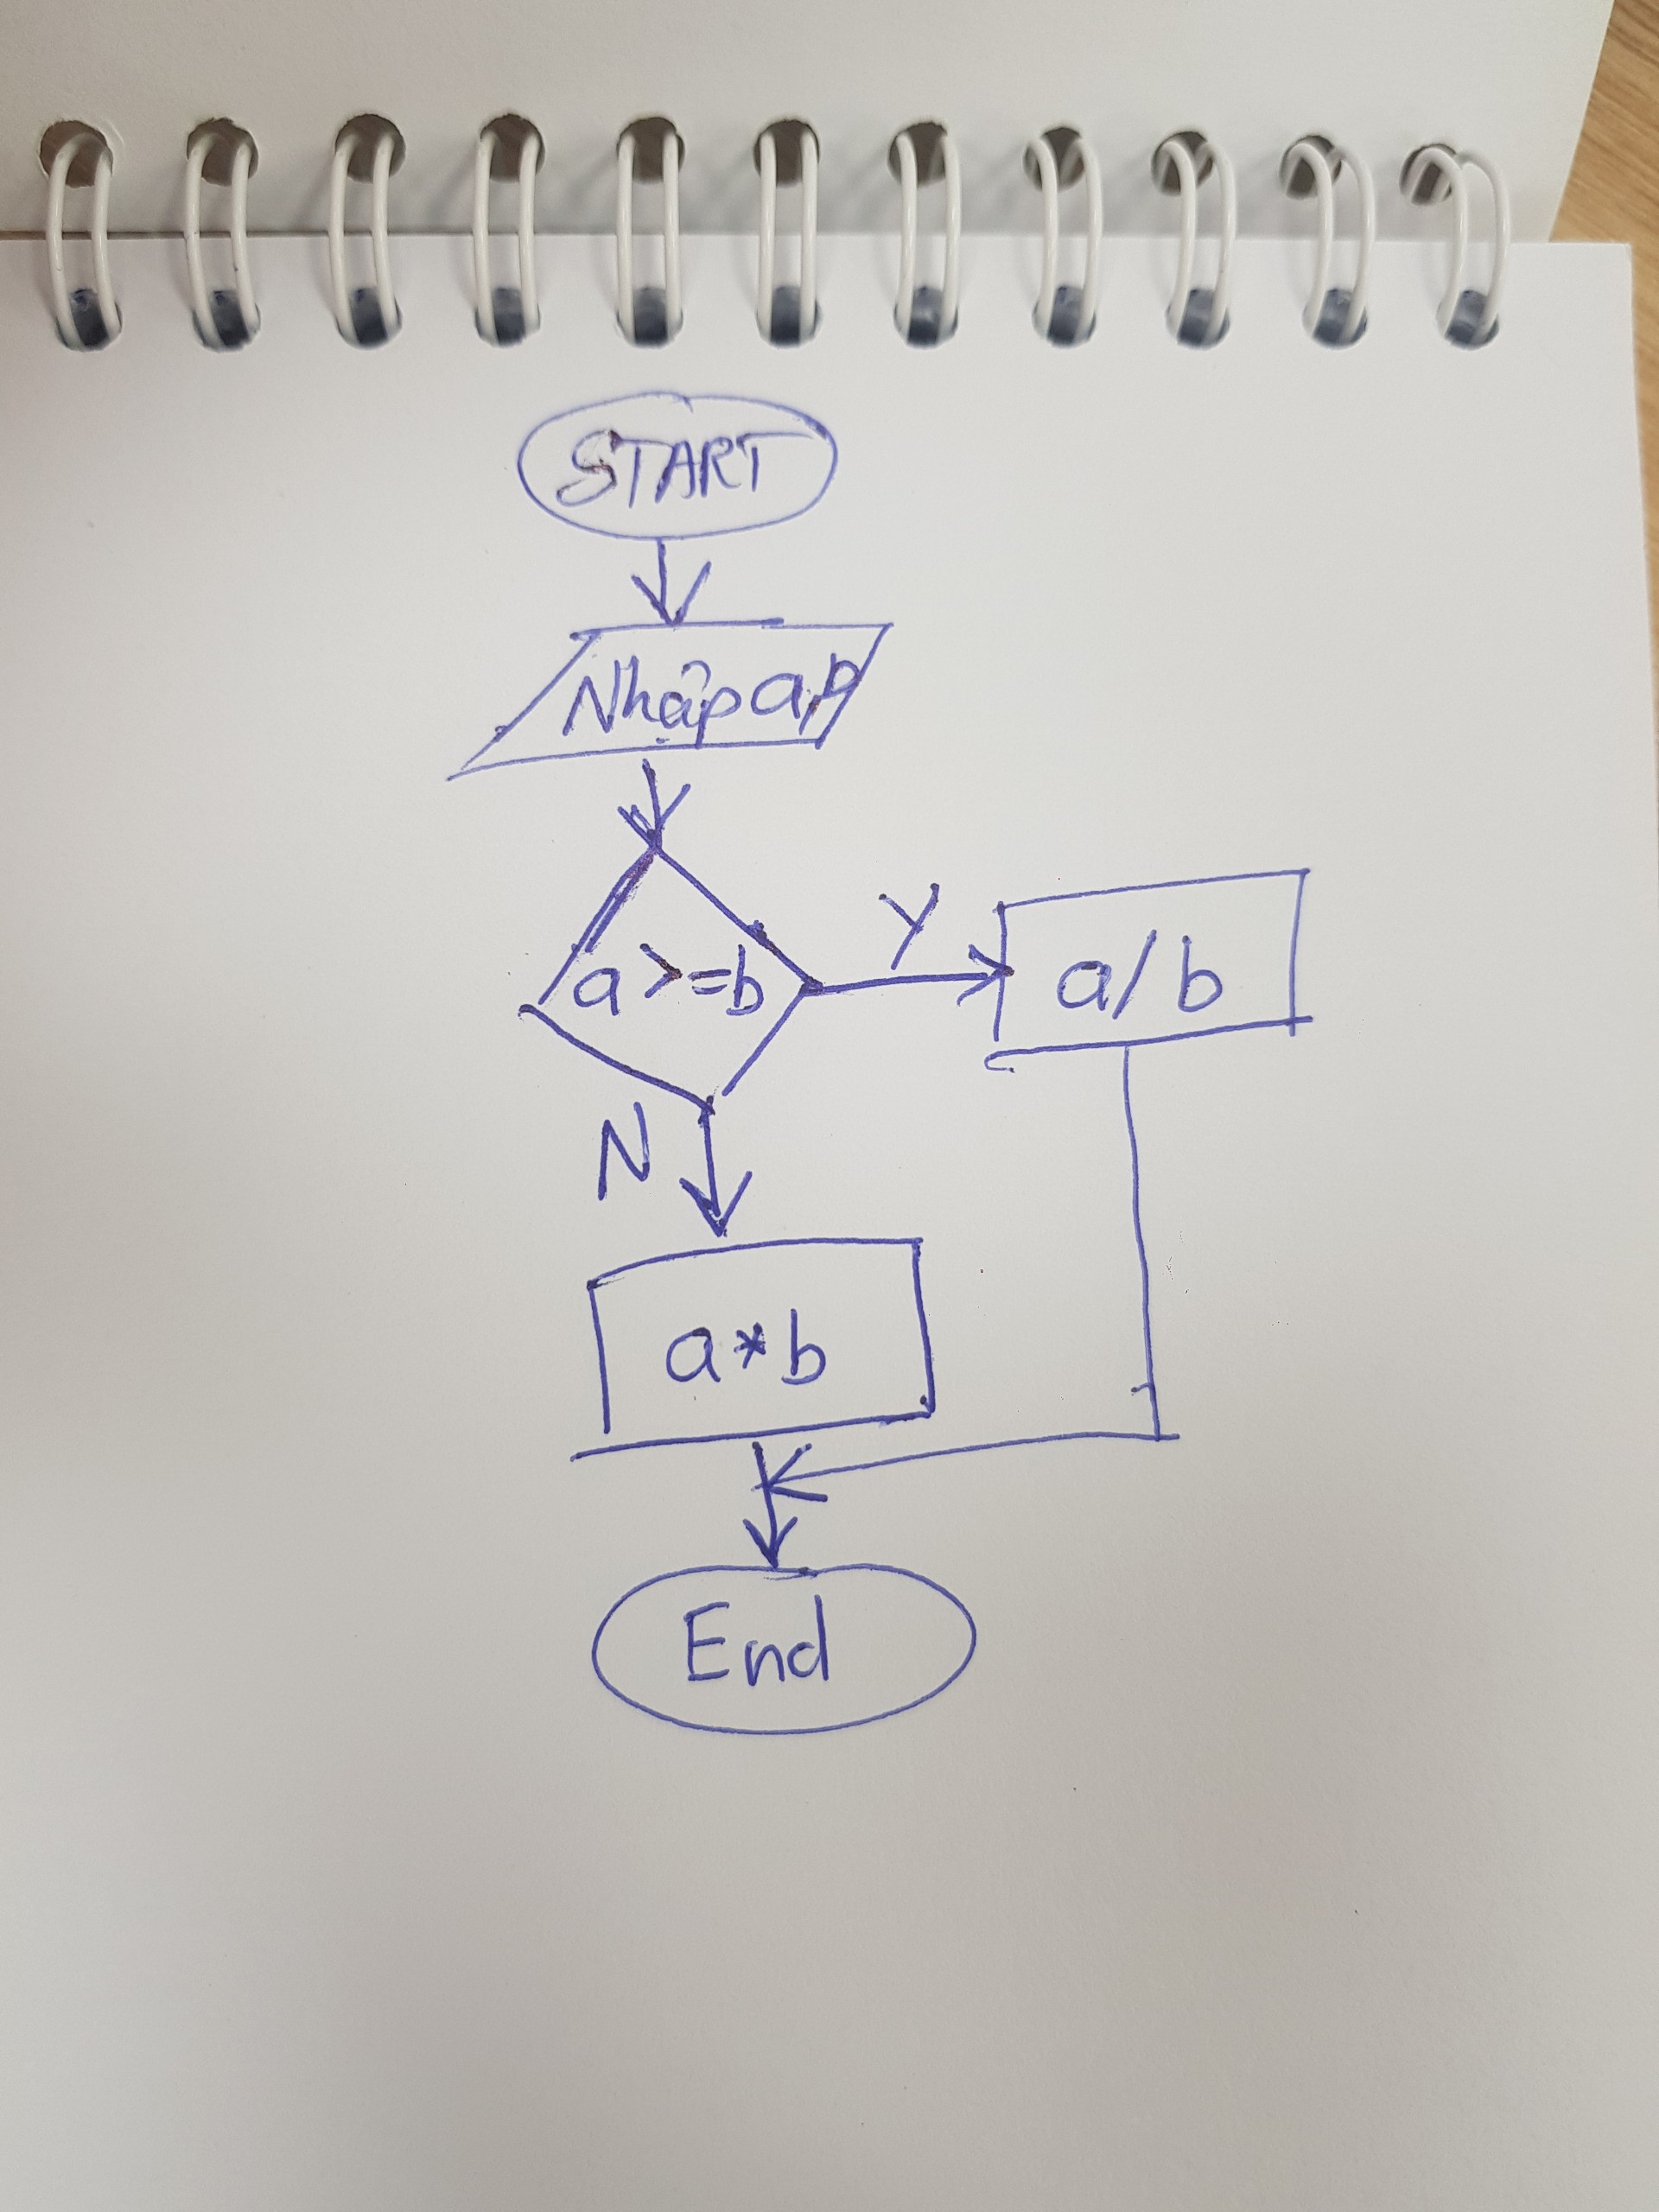 START
Nhập a,b
a>=b
Y
a/b
N
a*b
End